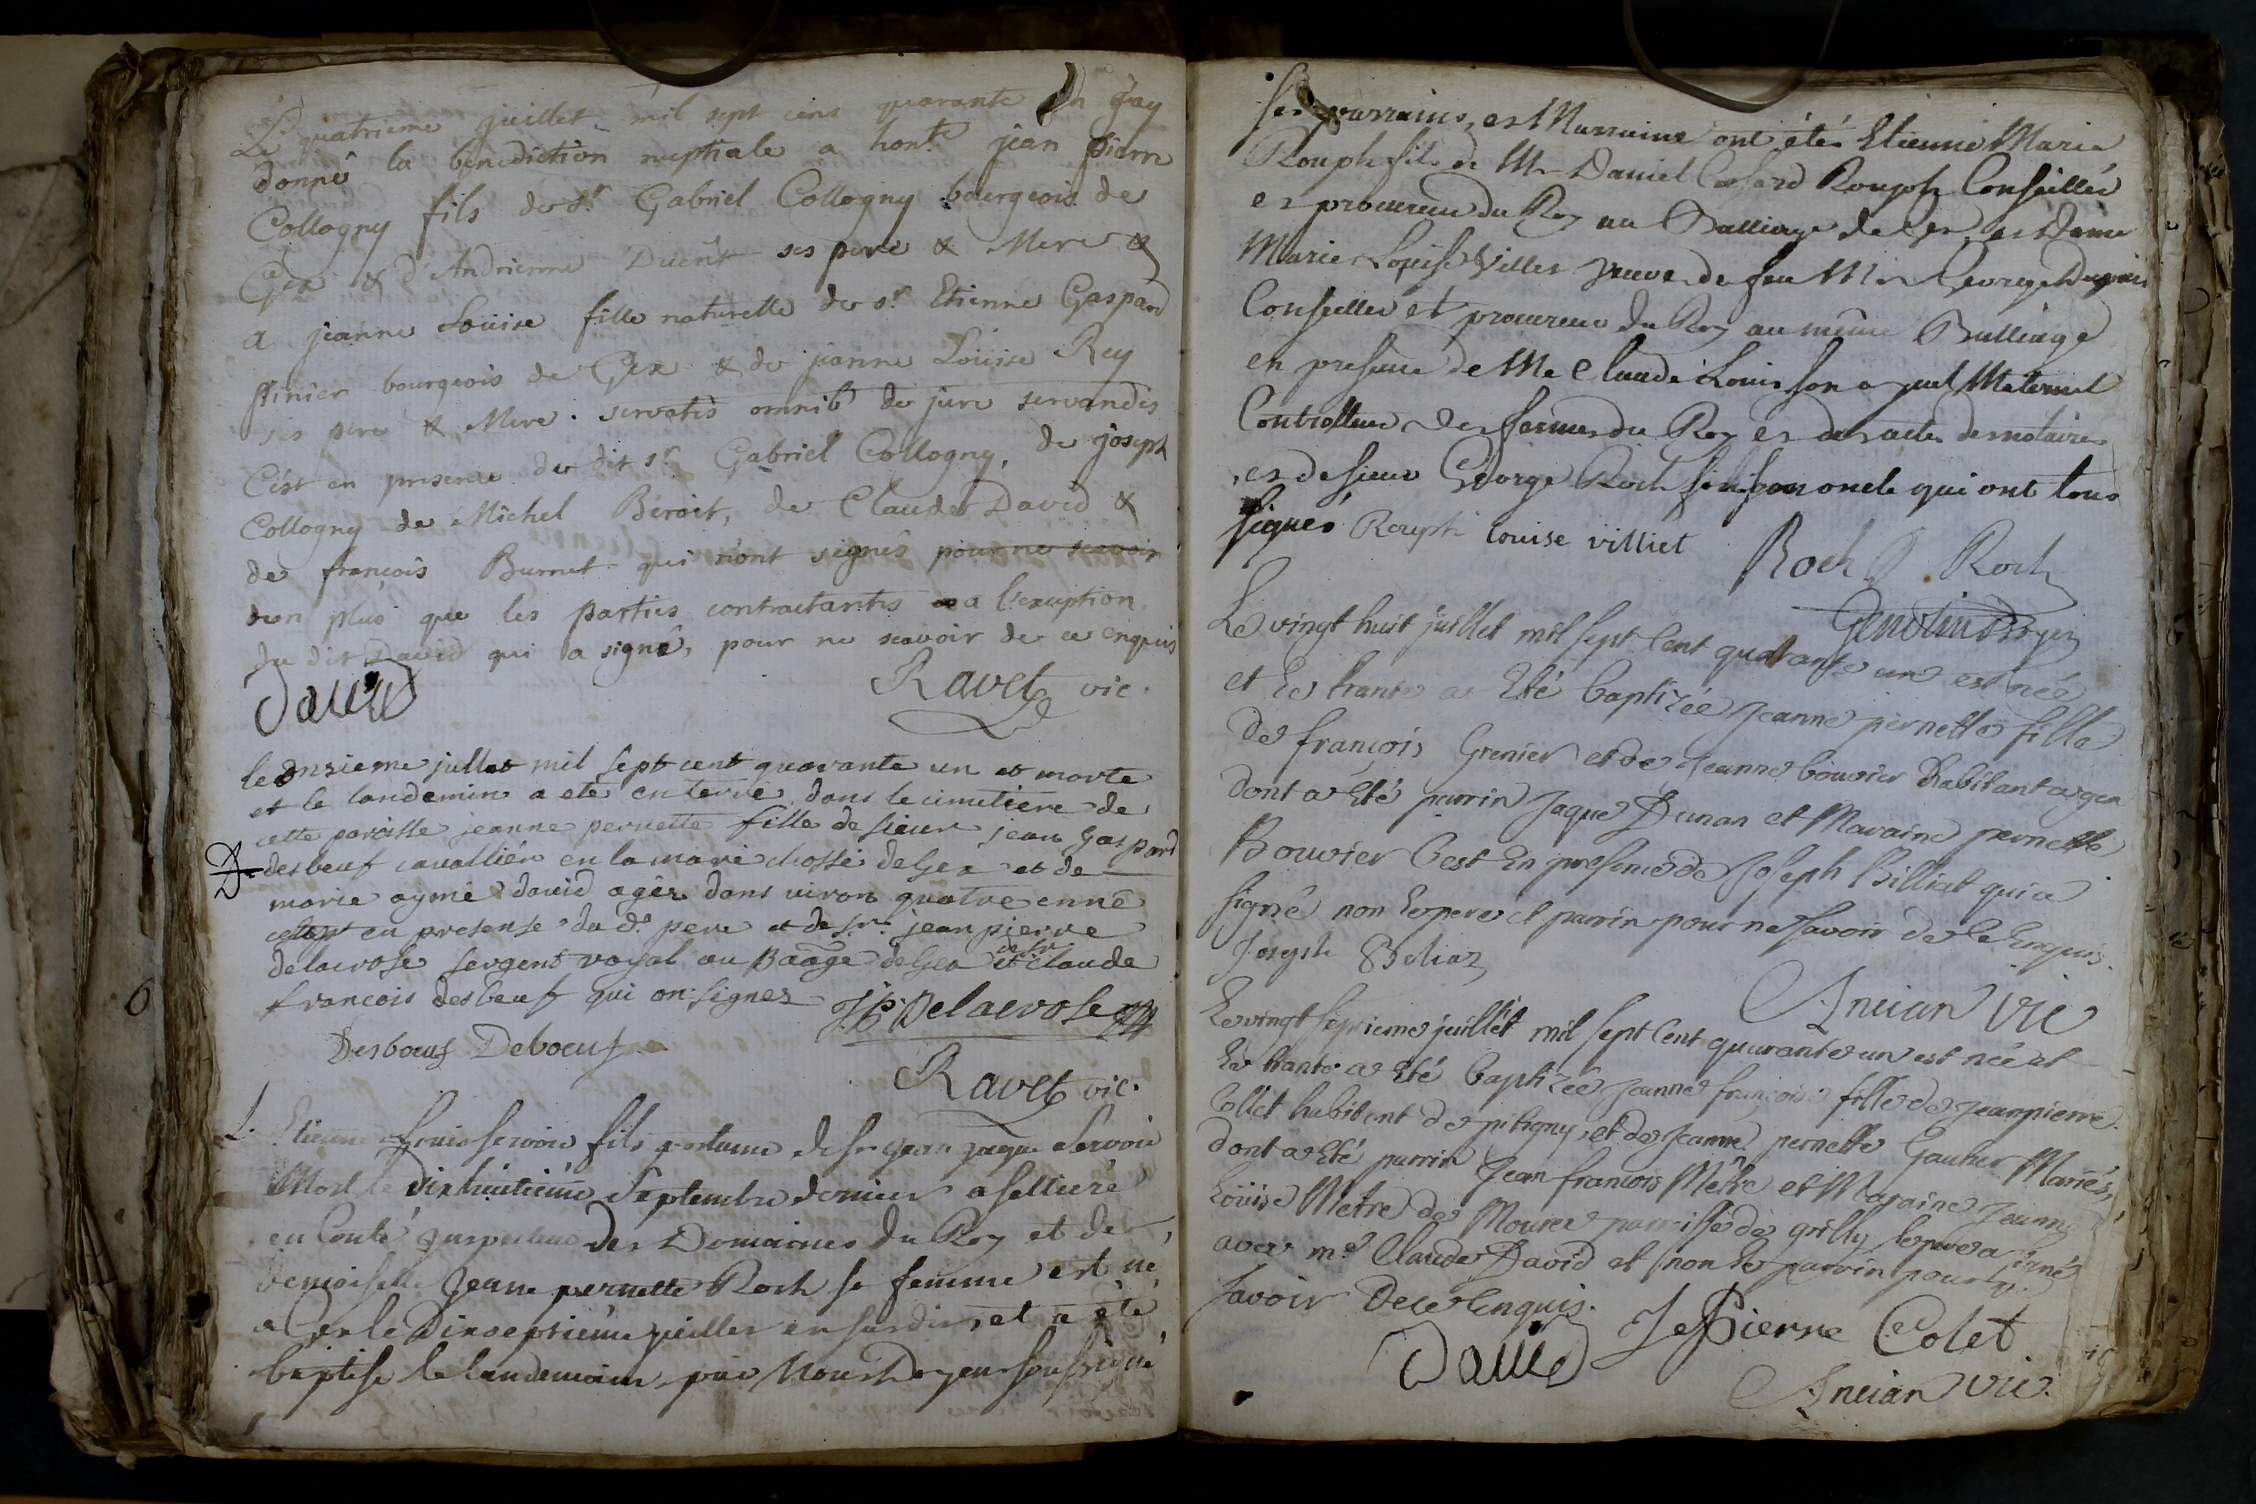 Le quatrieme juillet mil sept cens quarante un j'ay
donné la benediction nuptiale a hon.te jean pierre
Collogny fils de s.r Gabriel Collogny bourgeois de
Gex & d'Andrienne ses pere & Mere &
a jeanne Loüise fille naturelle de s.r Etienne Gaspard
bourgeois de Gex & de jeanne Loüise Rey
ses pere & Mere. servatis omnib de jure servandis
C'est en presence du dit s.r Gabriel Collogny, de joseph
Collogny de Michel Béroit, de Claude David &
de françois Burnet qui n'ont signés pour ne scavoir
non plus que les parties contractantes a l'exception
du dit David qui a signé, pour ne scavoir de ce enquis
David Ravet vic.
le onsieme jullet mil sept cent quarante un et morte
et le landemin a eté enterré dans le cimetiere de
cette paroisse jeanne pernette fille de sieur jean gaspard
D. desbeuf cavallier en la mare chossé de Gex et de
marie aymé david agée dans viron quatre enné
cest en presense du d. pere et de sr. jean pierre
delacrose sergent royal au Baage de Gex et de sr claude
francois desbeuf qui on signez J.p. Delacrose
Desboeuf Deboeuf
Ravet vic.
Etienne Louis Servoie fils postume de sr jean jaque Servoie
Mort le dixhuitiéme Septembre dernier a
en Conté Inspecteur des Domaines du Roy et de
demoiselle Jeane pernette Roch se femme est né
a Gex le dixseptiéme juillet et a été
baptisé le landemain par Nous Doyen soussigné
ses parrains, et Marraine ont étés Etienne Marie
Rouph fils de Mr Daniel Rouph Conseiller
et procureur du Roy au Balliage de Gex, et Dame
Marie Loüise Villiet veuve de feu Mr George
Conseiller et procureur du Roy au même Balliage
en presence de Me Claude Louis son ayeul Maternel
Controlleur des fermes du Roy et des actes des notaires
et de sieur George Roch son oncle qui ont tous
signés Rouph louise villiet Roch Roch
Doyen
Le vingt huit juillet mil sept Cent quarante un est née
et Le trente a Eté baptizée Jeanne pernette fille
de françois Grenier et de Jeanne bouvier habitant a gex
dont a Eté parrin Jaque Dunan et Maraine pernette
Bouvier C'est En presence de Joseph Billiat qui a
signé non Le pere et parrin pour ne savoir de ce Enquis.
Joseph Beliaz
Ancian Vic
Le vingt septieme juillet mil sept Cent quarante un est née et
Le trente a Eté baptizée Jeanne françoise fille de Jean pierre
Collet habitant de pitigny, et de Jeanne pernette Gautier Mariés,
dont a Eté parrin Jean francois Metre et Maraine Jeanne
Loüise Metre de Mourex parroisse de grilly le pere a signé
avec m.e Claude David et non Le parrin pour ne
savoir De ce Enquis.
David Je Pierre Colet
Ancian Vic.